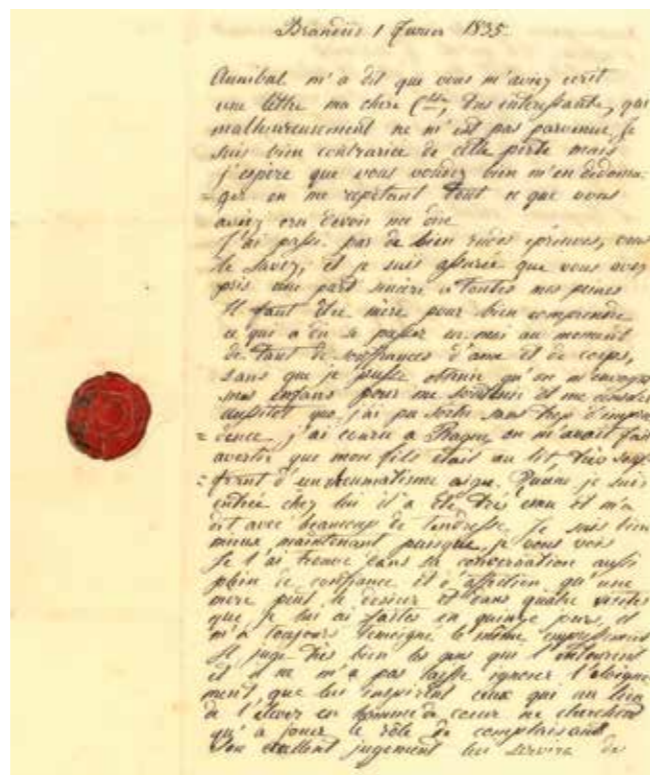 Brandeis 1 fevrier 1835.
Annibal m'a dit que vous m'aviez ecrit
une lettre ma chere Ctesse, très interessante, qui
malheureusement ne m'est pas parvenue, je
suis bien contrariée de cette perte mais
j'espere que vous voudrez bien m'en dedoma-
=ger en me repetant tout ce que vous
aviez cru devoir me dire
J'ai passé par de bien rudes épreuves, vous
le savez, et je suis assurée que vous avez
pris une part sincere a toutes mes peines
Il faut être mère pour bien comprendre
ce qui a du se passer en moi au moment
de tant de souffrances d'ame et de corps,
sans que je pusse obtenir qu'on m'envoya
mes enfans pour me soutenir et me consoler
aussitot que j'ai pu sortir sans trop d'impru
=dence j'ai couru a Prague on m'avait fait
avertir que mon fils était au lit très souf
=frant d'un rheumatisme aigu. Quand je suis
entrée chez lui il a été très emu et m'a
dit avec beaucoup de tendresse, Je suis bien
mieux maintenant puisque je vous vois
Je l'ai trouvé dans sa conversation aussi
plein de confiance et d'affection qu'une
mere peut le desirer et dans quatre visites
que je lui ai faites en quinze jours, il
m'a toujours temoigné le même empressement
Il juge très bien les gens qui l'entourent
et il ne m'a pas laissé ignorer l'eloigne
ment que lui inspirent ceux qui au lieu
de l'elever en homme de coeur ne cherchent
qu'a jouer le rôle de complaisant
Son excellent jugement lui servira de